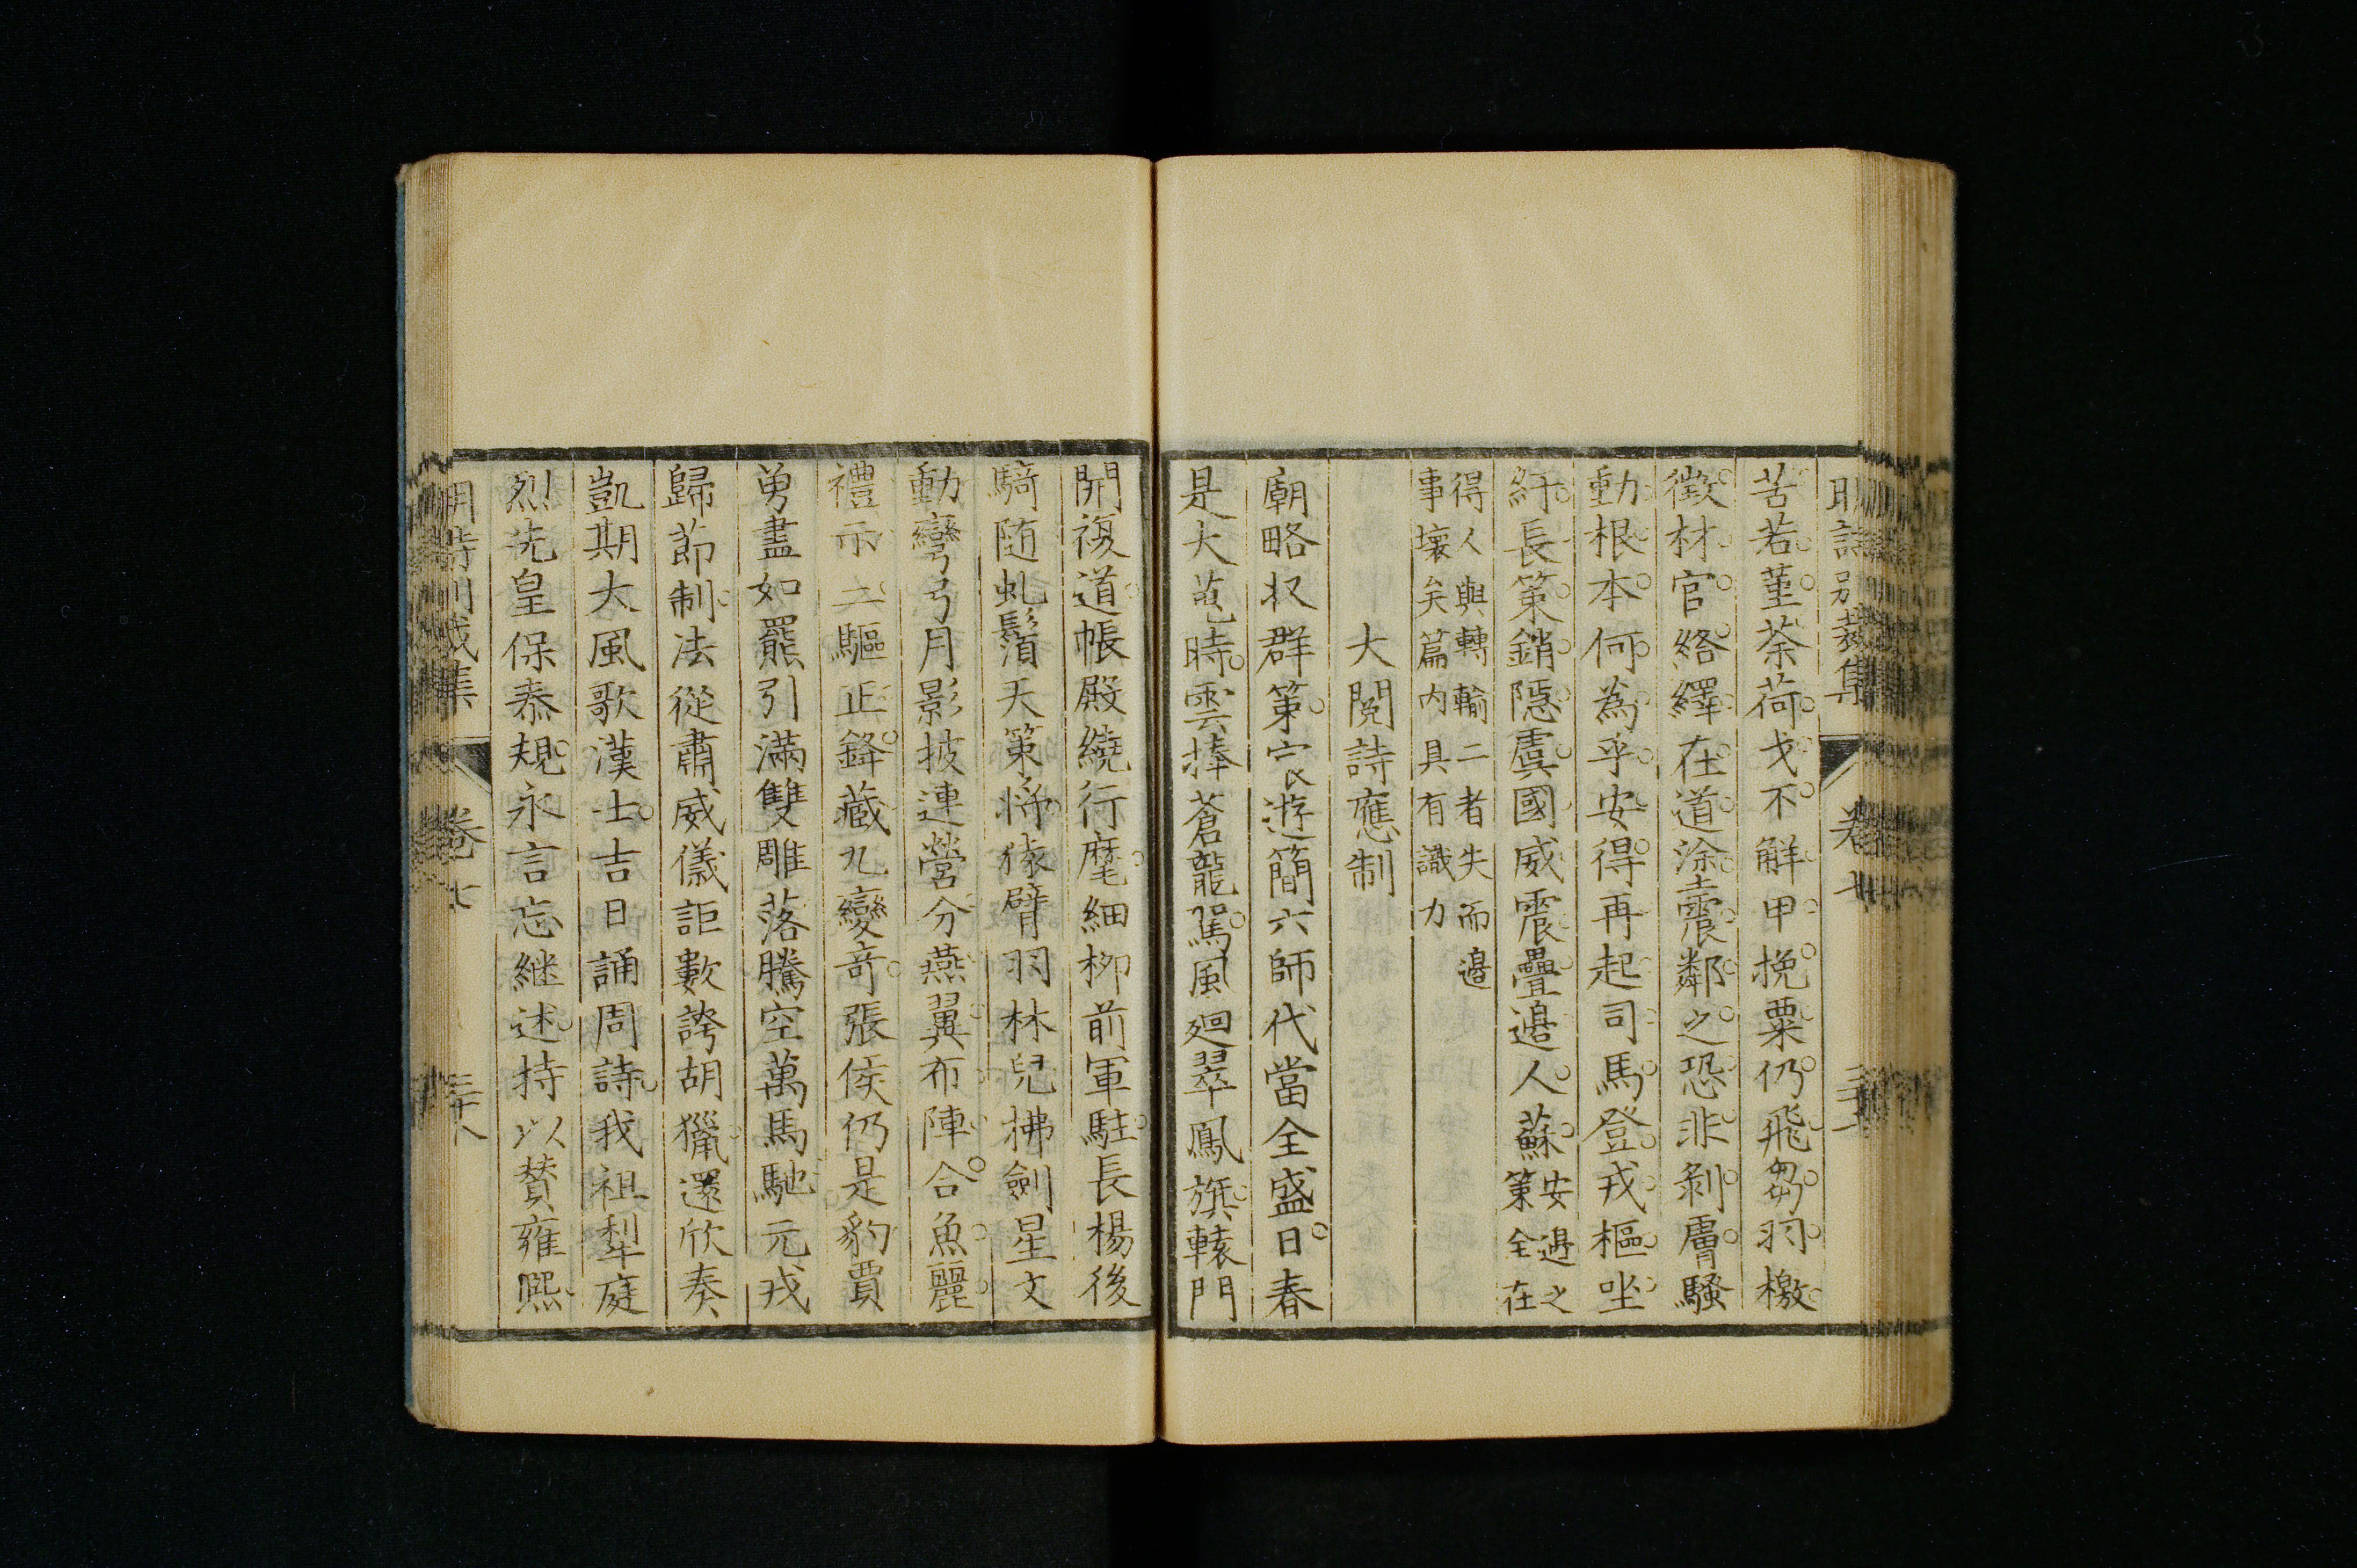 明詩別裁集 卷七
苦若菫荼荷戈不解甲挽粟仍飛芻羽檄
徵材官絡繹在道塗震鄰之恐非剝膚騷
動根本何為乎安得再起司馬登戎樞坐
紆長策銷隱虞國威震疊邉人蘇安邉之策全在
得人與轉輸二者失而邉
事壞矣篇内具有識力
大閱詩應制
廟略収群策宸遊簡六師代當全盛日春
是大蒐時雲捧蒼龍駕風廻翠鳳旗轅門
開複道帳殿繞行麾細柳前軍駐長楊後
騎随虬鬚天策將猿臂羽林兒拂劍星文
動彎弓月影披連營分燕翼布陣合魚麗
禮示三驅正鋒藏九變奇張侯仍是豹賈
勇盡如羆引滿雙雕落騰空萬馬馳元戎
歸節制法從肅威儀詎數誇胡獵還欣奏
凱期大風歌漢士吉日誦周詩我祖犁庭
烈先皇保泰規永言忘継述持以賛雍熙
明詩別裁集 卷七 三十八